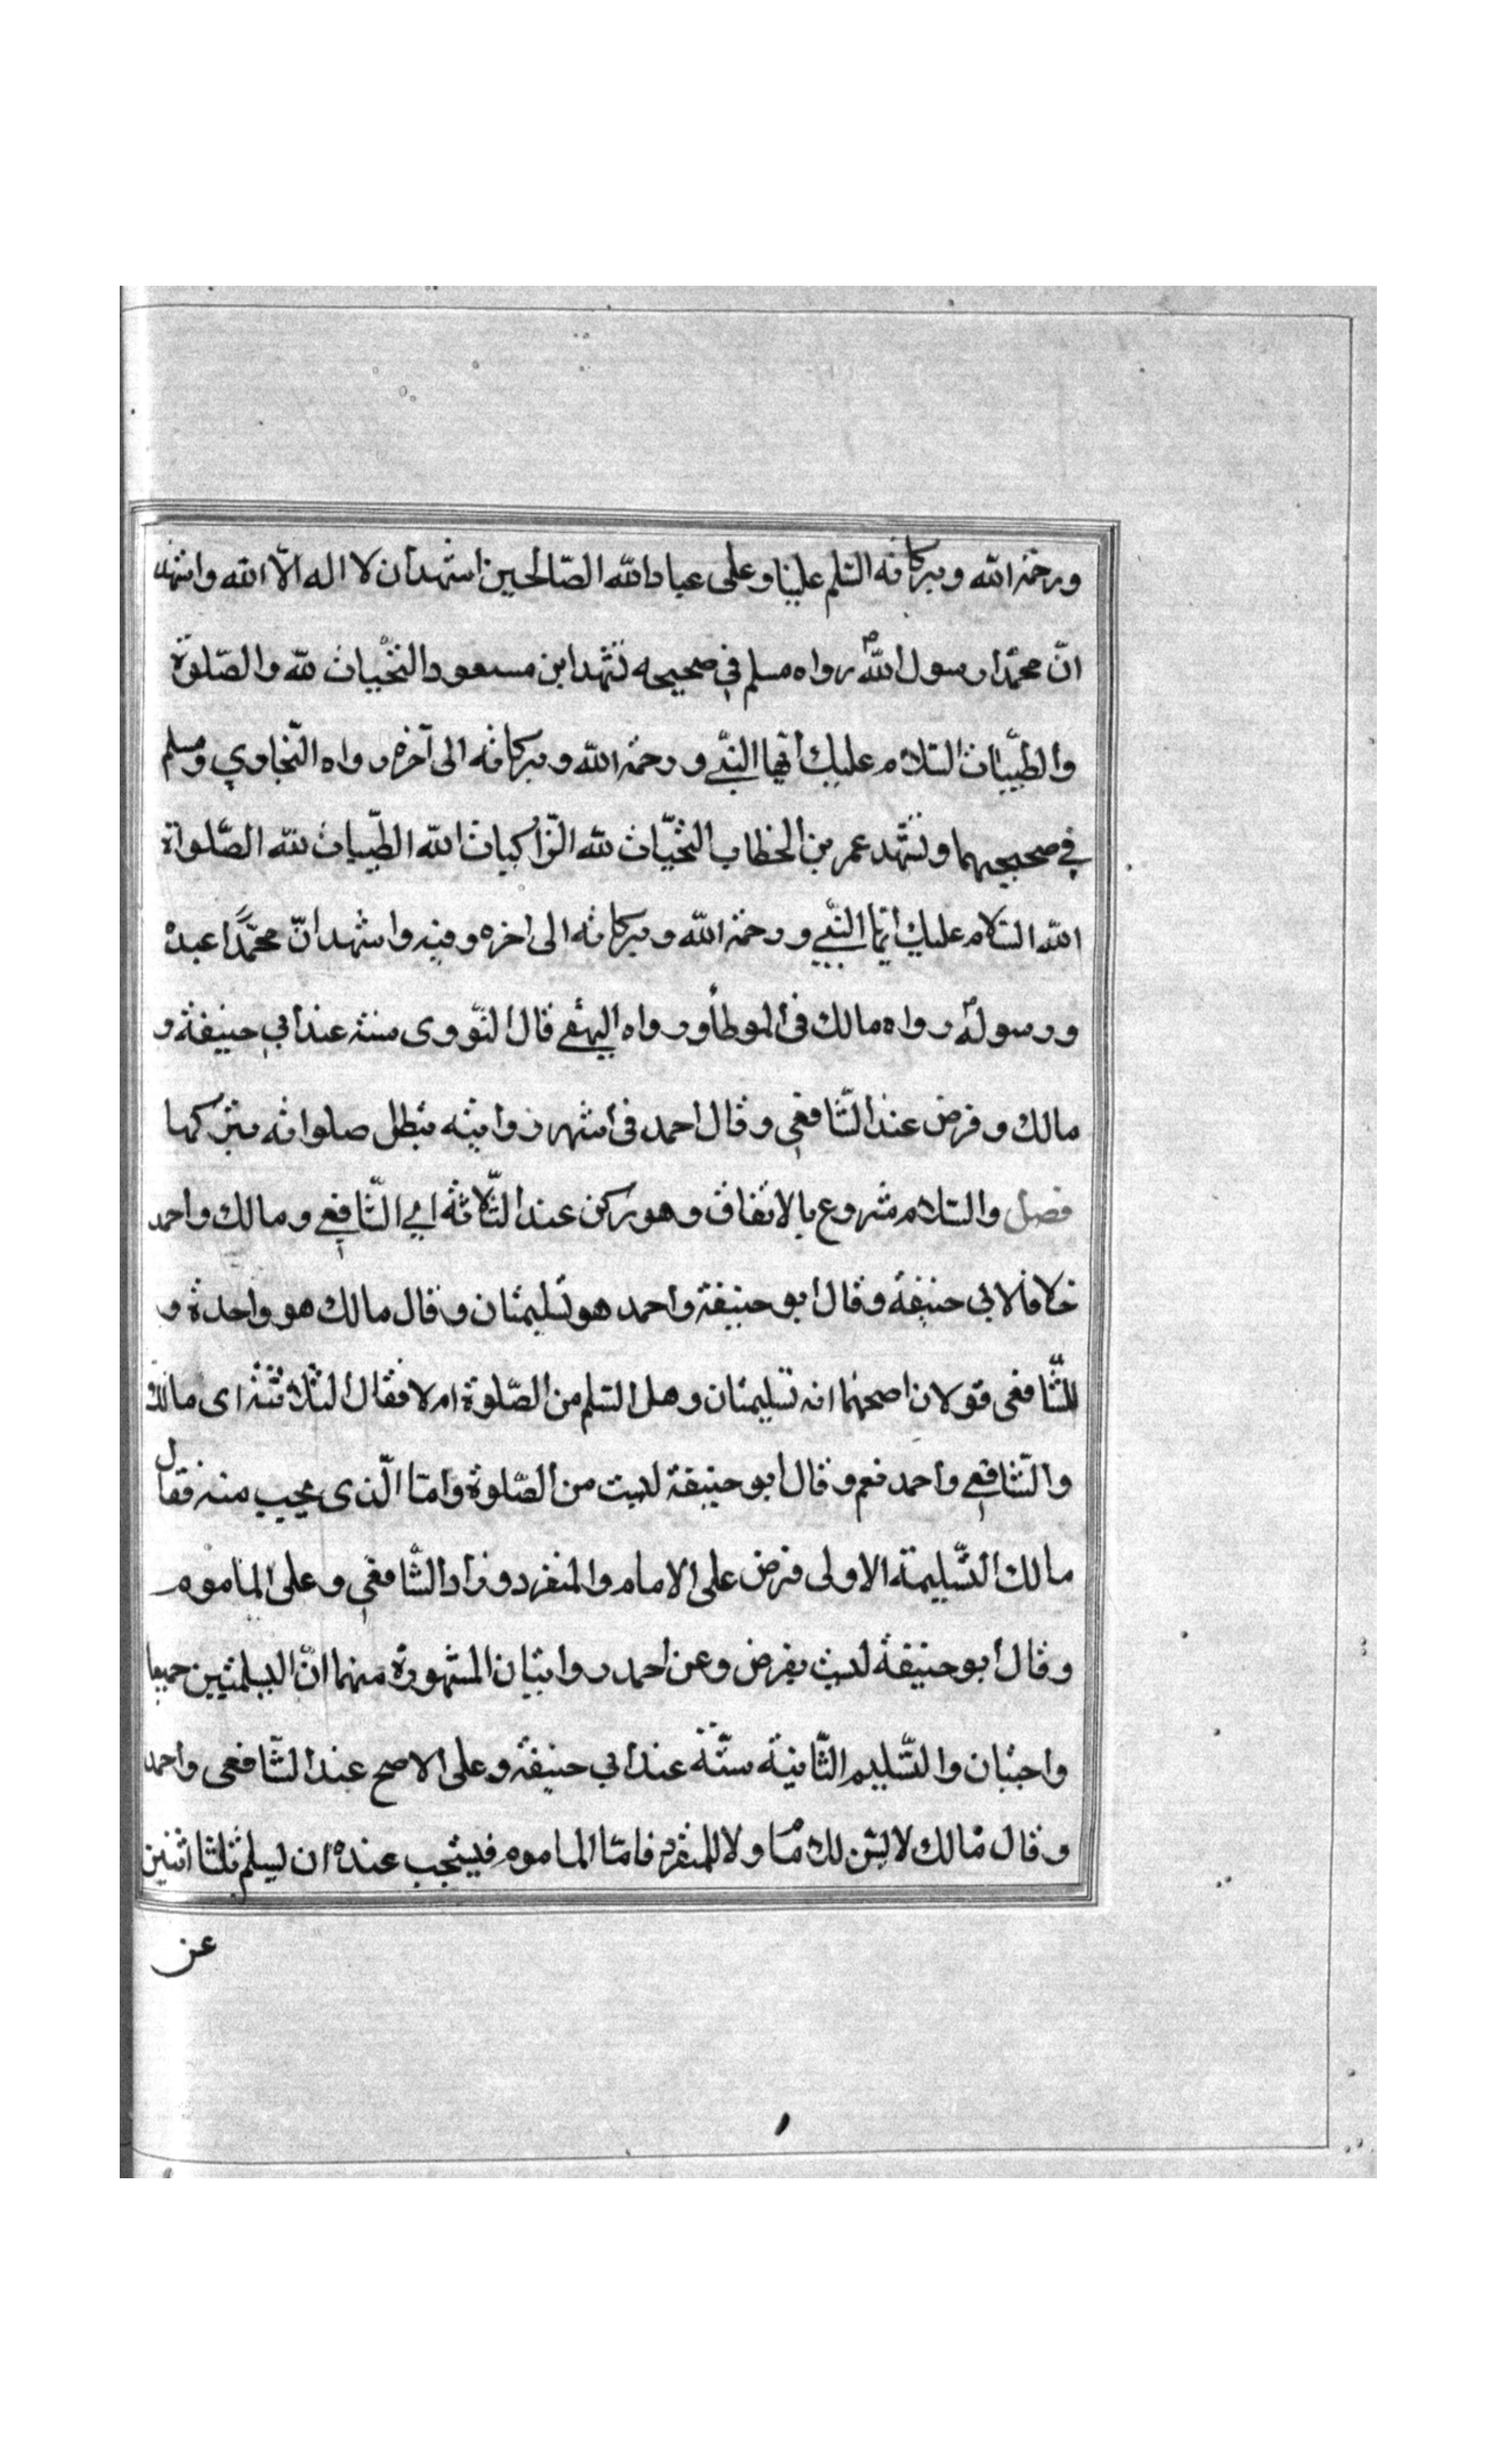 ورحمة الله وبركاته السلم علينا وعلى عباد الله الصّالحين اشهد ان لا اله الّا الله واشهد
انّ محمّدا رسول الله رواه مسلم في صحيحه تشهد ابن مسعود التحيّات لله والصّلوة
والطيّبات السّلام عليك أيّها النبّي ورحمة الله وبركاته الى آخره رواه البخاري ومسلم
في صحيحيهما وتشهّد عمر بن الخطاب التحيّات لله الزّاكيات لله الطّيبات لله الصّلواة
لله السّلام عليك ايّها النّبي ورحمة الله وبركاته الى اخره وفيه واشهد انّ محمّدًا عبده
ورسوله رواه مالك فى الموطأ ورواه البيهقي قال النّووى سنته عند أبي حنيفة و
مالك وفرض عند الشّافعي وقال احمد فى اشهر روايته تبطل صلواته بتركها
فصل والسّلام مشروع بالاتفاق وهو ركن عند الثّلاثة اي الشّافعي ومالك واحمد
خلافا لابي حنيفة وقال ابو حنيفة واحمد هو تسليمتان وقال مالك هو واحدة و
للشّافعى قولان اصحهما انه تسليمتان وهل السّلم من الصّلوة ام لا فقال الثلاثة اى مالك
والشّافعي واحمد نعم وقال ابو حنيفة ليست من الصّلوة وامّا الّذى يجب منه فقال
مالك التّسليمة الاولى فرض على الامام والمنفرد وزاد الشّافعي وعلى الماموم
وقال أبو حنيفة ليست بفرض وعن احمد روايتان المشهورة منهما انّ التسلمتين جميعا
واجبتان والتّسليم الثّانية سنّة عند ابي حنيفة وعلى الاصح عند الشّافعى واحمد
وقال مالك لا يسن ولا للمنفرد فامّا الماموم فيستحب عنده ان يسلم ثلثا اثنين
عن